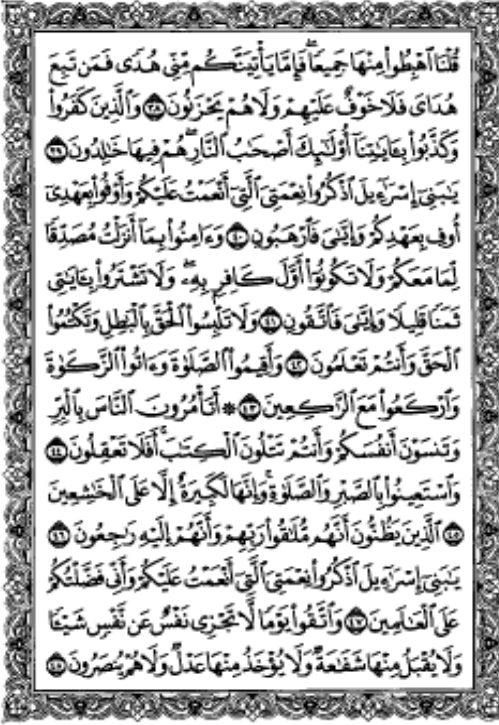 قُلْنَا ٱهْبِطُوا۟ مِنْهَا جَمِيعًاۖ فَإِمَّا يَأْتِيَنَّكُم مِّنِّى هُدًى فَمَن تَبِعَ
هُدَاىَ فَلَا خَوْفٌ عَلَيْهِمْ وَلَا هُمْ يَحْزَنُونَ ٣٨ وَٱلَّذِينَ كَفَرُوا۟
وَكَذَّبُوا۟ بِـَٔايَـٰتِنَآ أُو۟لَـٰٓئِكَ أَصْحَـٰبُ ٱلنَّارِۖ هُمْ فِيهَا خَـٰلِدُونَ ٣٩
يَـٰبَنِىٓ إِسْرَٰٓءِيلَ ٱذْكُرُوا۟ نِعْمَتِىَ ٱلَّتِىٓ أَنْعَمْتُ عَلَيْكُمْ وَأَوْفُوا۟ بِعَهْدِىٓ
أُوفِ بِعَهْدِكُمْ وَإِيَّـٰىَ فَٱرْهَبُونِ ٤٠ وَءَامِنُوا۟ بِمَآ أَنزَلْتُ مُصَدِّقًا
لِّمَا مَعَكُمْ وَلَا تَكُونُوٓا۟ أَوَّلَ كَافِرٍۭ بِهِۦۖ وَلَا تَشْتَرُوا۟ بِـَٔايَـٰتِى
ثَمَنًا قَلِيلًا وَإِيَّـٰىَ فَٱتَّقُونِ ٤١ وَلَا تَلْبِسُوا۟ ٱلْحَقَّ بِٱلْبَـٰطِلِ وَتَكْتُمُوا۟
ٱلْحَقَّ وَأَنتُمْ تَعْلَمُونَ ٤٢ وَأَقِيمُوا۟ ٱلصَّلَوٰةَ وَءَاتُوا۟ ٱلزَّكَوٰةَ
وَٱرْكَعُوا۟ مَعَ ٱلرَّٰكِعِينَ ٤٣ ۞ أَتَأْمُرُونَ ٱلنَّاسَ بِٱلْبِرِّ
وَتَنسَوْنَ أَنفُسَكُمْ وَأَنتُمْ تَتْلُونَ ٱلْكِتَـٰبَۚ أَفَلَا تَعْقِلُونَ ٤٤
وَٱسْتَعِينُوا۟ بِٱلصَّبْرِ وَٱلصَّلَوٰةِۚ وَإِنَّهَا لَكَبِيرَةٌ إِلَّا عَلَى ٱلْخَـٰشِعِينَ
٤٥ ٱلَّذِينَ يَظُنُّونَ أَنَّهُم مُّلَـٰقُوا۟ رَبِّهِمْ وَأَنَّهُمْ إِلَيْهِ رَٰجِعُونَ ٤٦
يَـٰبَنِىٓ إِسْرَٰٓءِيلَ ٱذْكُرُوا۟ نِعْمَتِىَ ٱلَّتِىٓ أَنْعَمْتُ عَلَيْكُمْ وَأَنِّى فَضَّلْتُكُمْ
عَلَى ٱلْعَـٰلَمِينَ ٤٧ وَٱتَّقُوا۟ يَوْمًا لَّا تَجْزِى نَفْسٌ عَن نَّفْسٍ شَيْـًٔا
وَلَا يُقْبَلُ مِنْهَا شَفَـٰعَةٌ وَلَا يُؤْخَذُ مِنْهَا عَدْلٌ وَلَا هُمْ يُنصَرُونَ ٤٨